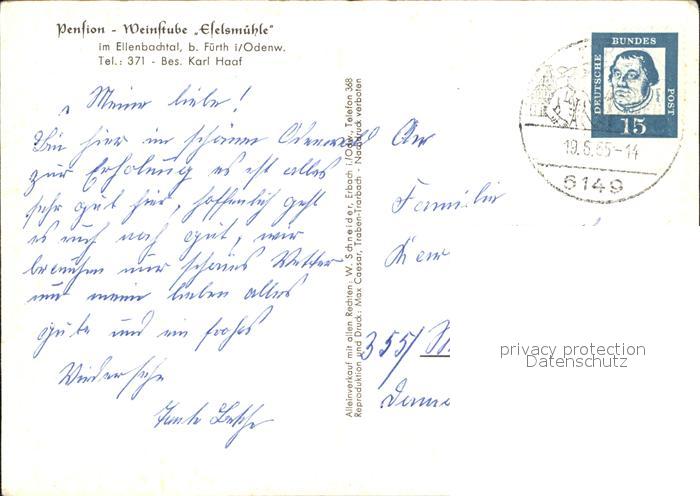 Pension - Weinstube „Eselsmühle"
im Ellenbachtal, b. Fürth i/Odenw.
Tel.: 371 - Bes. Karl Haaf
Meine liebe!
Bin hier im schönen Odenwald
zur Erholung es ist alles
sehr gut hier, hoffentlich geht
es euch noch gut, wir
brauchen nur schönes Wetter
nun meine lieben alles
gute und ein frohes
Wiedersehn
Tante
Alleinverkauf mit allen Rechten: W. Schneider, Erbach i/Odw. Telefon 368
Reproduktion und Druck: Max Caesar, Traben-Trarbach - Nachdruck verboten
DEUTSCHE BUNDES POST
15
19.6.65-14
6149
An
Familie
355/
privacy protection
Datenschutz